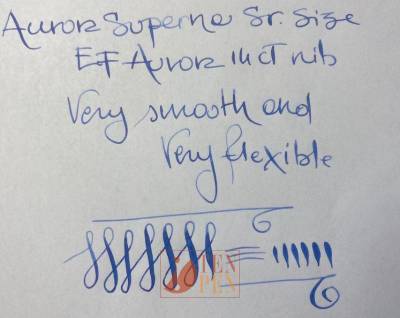 Aurora Superna Sr. Size
EF Aurora 14 ct nib
Very smooth and
Very flexible
TEN
PEN